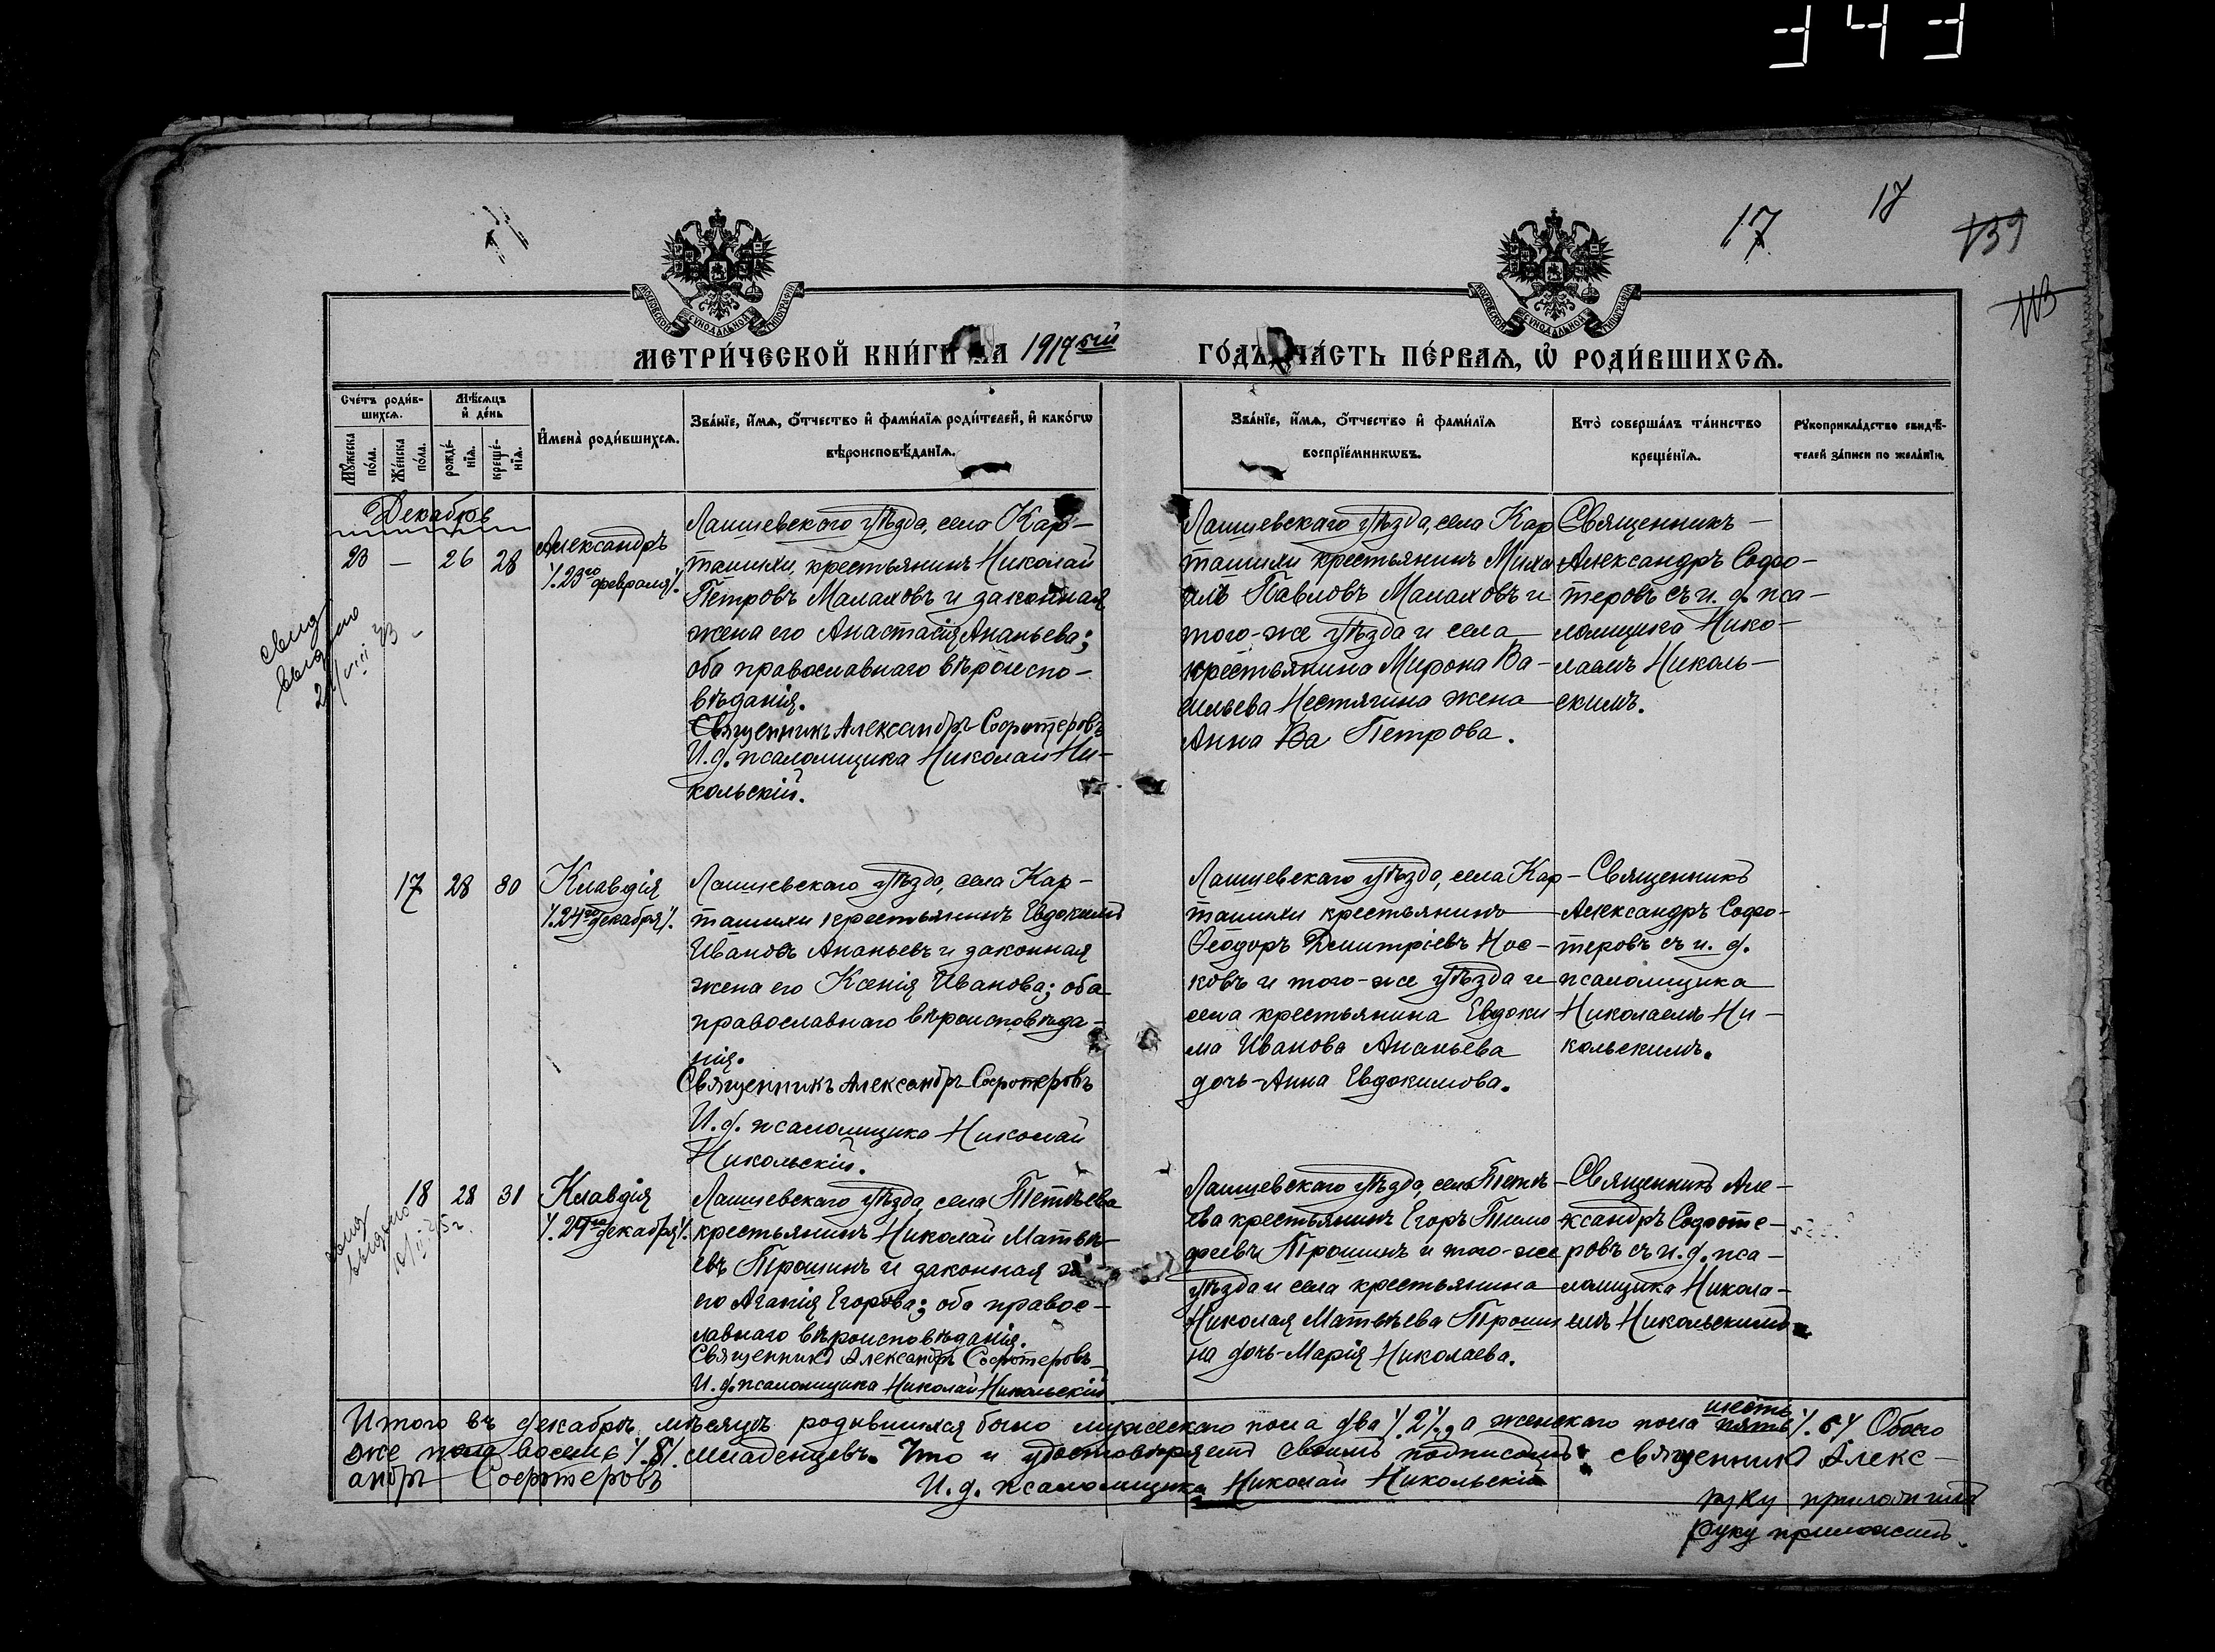 343
17
17
139
113
МОСКОВСКОЙ СѴНОДАЛЬНОЙ ТИПОГРАФІИ
МОСКОВСКОЙ СѴНОДАЛЬНОЙ ТИПОГРАФІИ
МЕТРИ́ЧЕСКОЙ КНИ́ГИ НА 1917ый ГО́ДЪ, ЧА́СТЬ ПЕ́РВАѦ, Ѡ҆ РОДИ́ВШИХСѦ.
Сче́тъ роди́в-
шихсѧ.
Мѣ́сѧцъ
и҆ де́нь
Му́жеска
по́ла.
Же́нска
по́ла.
рожде́-
нїѧ.
креще́-
нїѧ.
И҆мена̀ роди́вшихсѧ.
Зва́нїе, и҆́мѧ, ѻ҆́тчество и҆ фами́лїѧ роди́телей, и҆ како́гѡ
вѣроисповѣ́данїѧ.
Зва́нїе, и҆́мѧ, ѻ҆́тчество и҆ фами́лїѧ
воспрїе́мникѡвъ.
Кто̀ соверша́лъ та́инство
креще́нїѧ.
Рукоприкла́дство свидѣ́-
телей за́писи по жела́нїю.
Декабрь
23 — 26 28
Александръ
/.23го февраля/.
Лаишевскаго уѣзда, села Кар-
ташихи, крестьянинъ Николай
Петровъ Малаховъ и законная
жена его Анастасія Ананьева;
оба православнаго вѣроиспо-
вѣданія.
Священникъ Александръ Софотеровъ
И.д. псаломщика Николай Ни-
кольскій.
Лаишевскаго уѣзда, села Кар
ташихи крестьянинъ Миха
илъ Павловъ Малаховъ и
того-же уѣзда и села
крестьянина Мирона Ва-
сильева Нестягина жена
Анна Ва Петрова.
Священникъ —
Александръ Софо-
теровъ съ и. д. пса-
ломщика Нико-
лаемъ Николь-
скимъ.
свид
выдано
17 28 30
Клавдія
/.24го декабря/.
Лаишевскаго уѣзда, села Кар-
ташихи крестьянинъ Евдокимъ
Ивановъ Ананьевъ и законная
жена его Ксенія Иванова; оба
православнаго вѣроисповѣда-
нія.
Священникъ Александръ Софотеровъ
И.д. псаломщика Николай
Никольскій.
Лаишевскаго уѣзда, села Кар-
ташихи крестьянинъ
Ѳеодоръ Димитріевъ Нос-
ковъ и того-же уѣзда и
села крестьянина Евдоки
ма Иванова Ананьева
дочь-Анна Евдокимова.
Священникъ
Александръ Софо-
теровъ съ и. д.
псаломщика
Николаемъ Ни-
кольскимъ.
18 28 31
Клавдія
/.24го декабря/.
Лаишевскаго уѣзда, села Тетѣева
крестьянинъ Николай Матвѣ-
евъ Трошинъ и законная
его Агапія Егорова; оба правос-
лавнаго вѣроисповѣданія.
Священникъ Александръ Софотеровъ
И.д. псаломщика Николай Никольскій
Лаишевскаго уѣзда, села Тетѣ-
ева крестьянинъ Егоръ Тимо
феевъ Трошинъ и того-же
уѣзда и села крестьянина
Николая Матвѣева Троши
на дочь-Марія Николаева.
Священникъ Але-
ксандръ Софоте-
ровъ съ и.д. пса-
ломщика Никола-
емъ Никольскимъ
свид
выдано
Итого въ декабрѣ мѣсяцѣ родившихся было мужескаго пола два /.2/., а женскаго пола пять шесть /.6/ Обоего
же пола восемь /.8/. младенцевъ. Что и удостовѣряемъ своимъ подписомъ: священникъ Алекс-
андръ Софотеровъ
И.д. псаломщика Николай Никольскій
руку приложилъ
руку приложилъ.